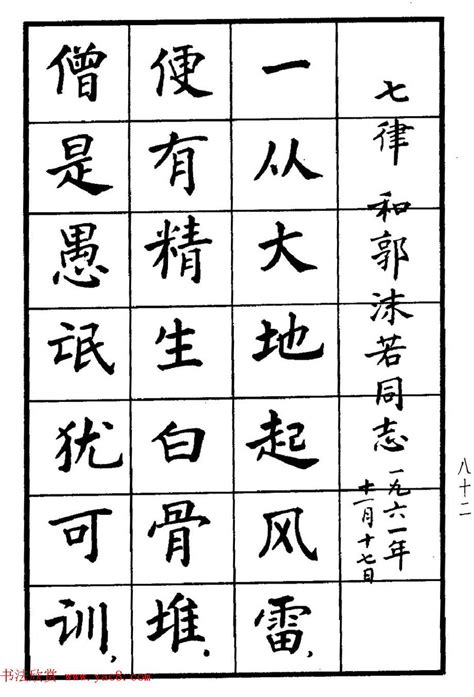 八十二
七律 和郭沫若同志 一九六一年
十一月十七日
一从大地起风雷,
便有精生白骨堆,
僧是愚氓犹可训,
书法欣赏 www.yac8.com